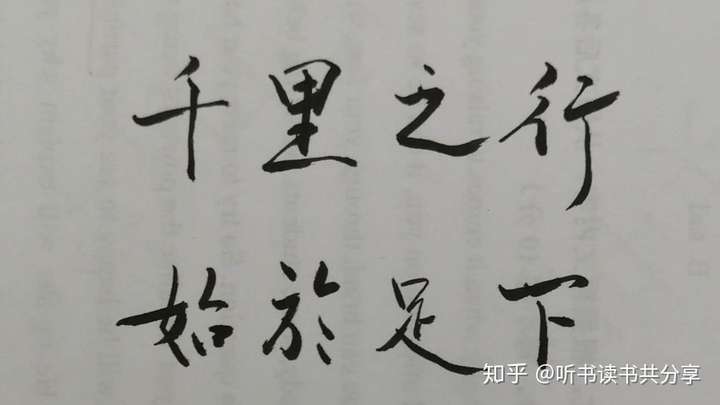 千里之行
始於足下
知乎 @听书读书共分享